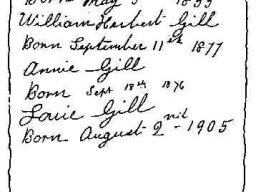 Born May 5 1855
William Herbert Gill
Born September 11th 1877
Annie Gill
Born Sept 18th 1876
Louie Gill
Born August 2nd - 1905